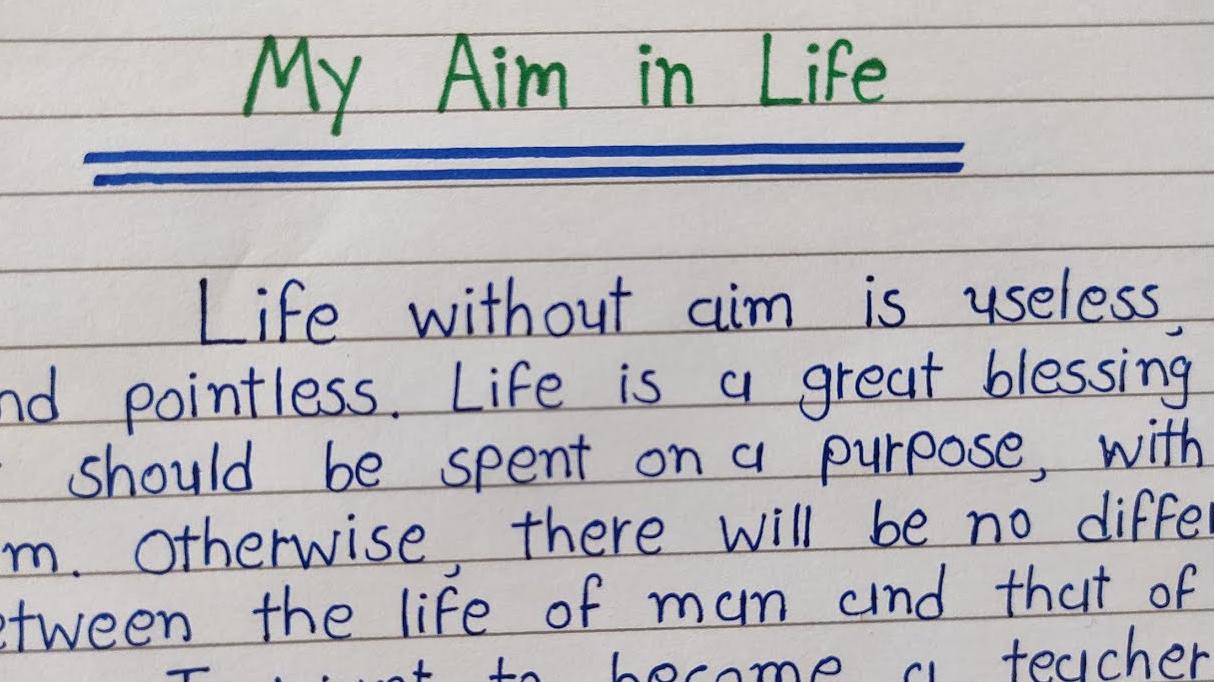 My Aim in Life
Life without aim is useless,
nd pointless. Life is a great blessing
should be spent on a purpose, with
m. Otherwise, there will be no differ
etween the life of man and that of
I want to become a teacher